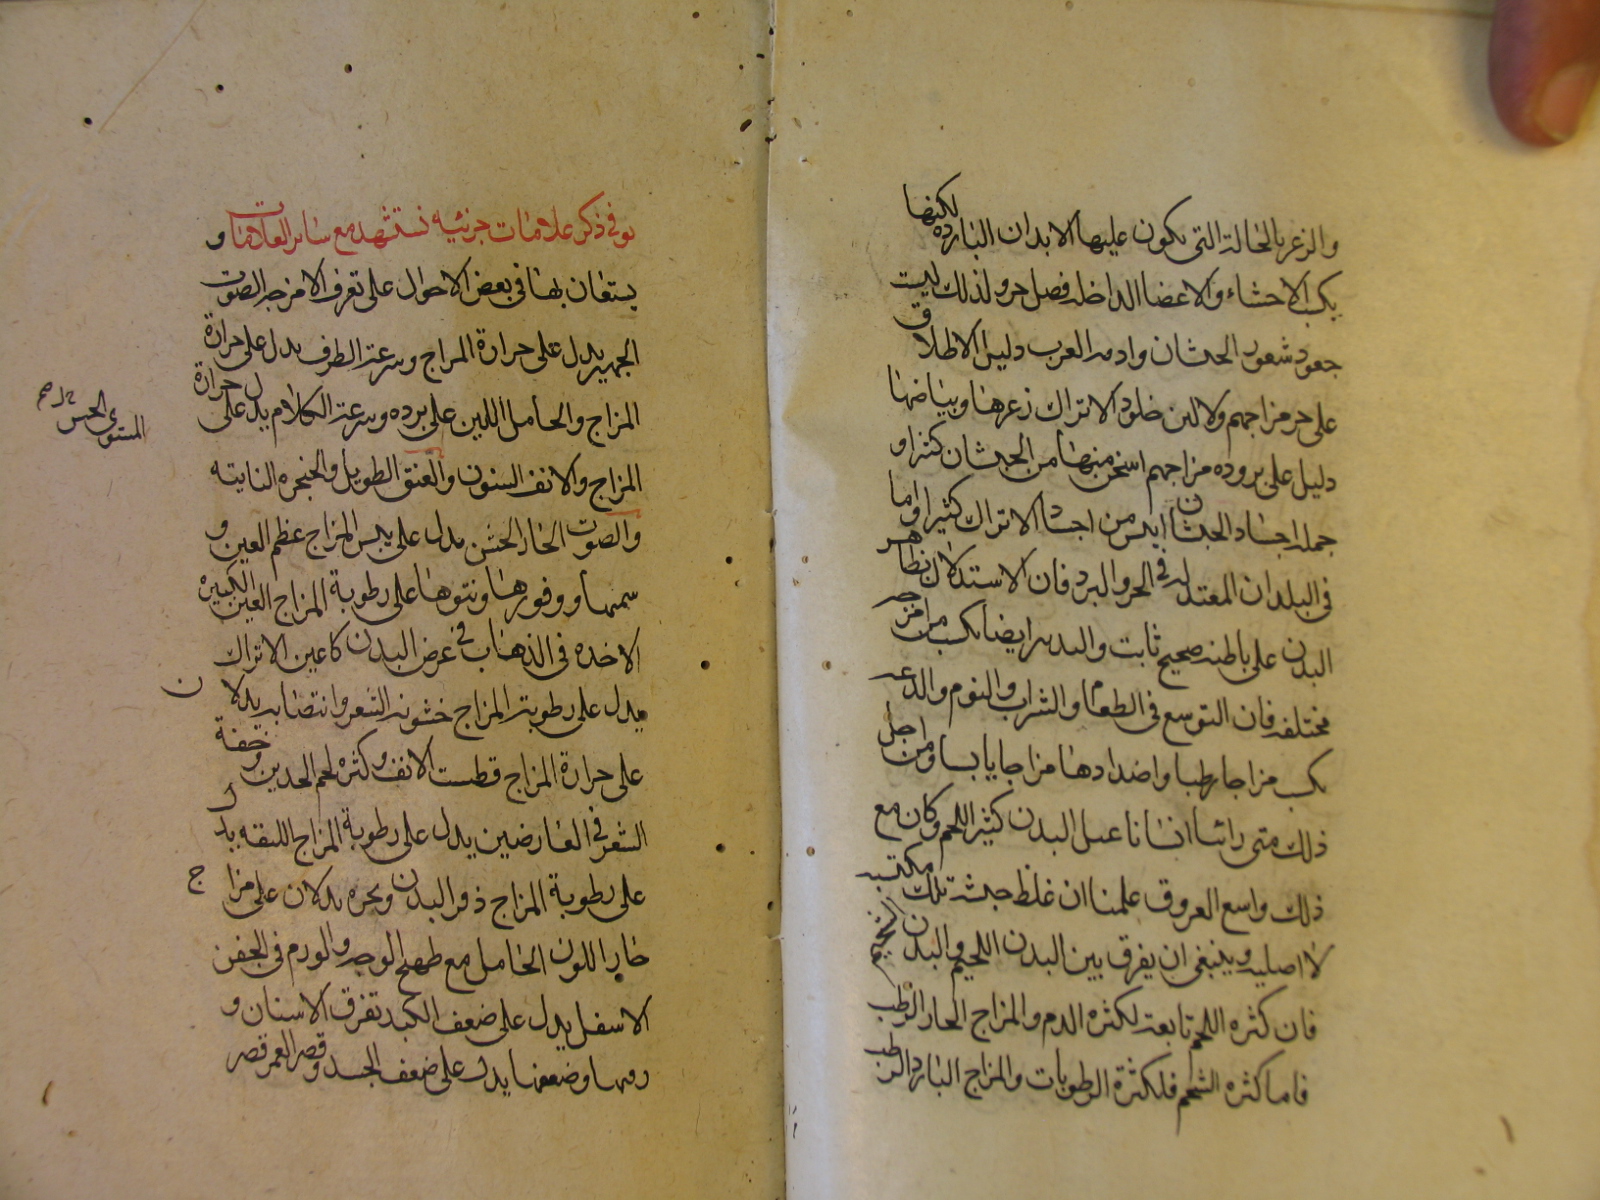 والزعر بالحالة التى يكون عليها الابدان البارده لكنها
يكب الاحشاء والاعضا الداخله فصل حر ولذلك ليست
جعوده شعور الحبشان وادمه العرب دليل الاطلاق
على حر مزاجهم ولا لين جلود الاتراك زعرها وبياضها
دليل على بروده مزاجهم اسخن منها من الحبشان كثيرا و
جمله اجساد الحبشان ايبس من اجساد الاتراك كثيرا واما
فى البلدان المعتدله فى الحر والبرد فان الاستدلال بظاهر
البدن على باطنه صحيح ثابت والتدبير ايضا يكسب امزجه
مختلفه فان التوسع فى الطعام والشراب والنوم والدعه
يكسب مزاجا رطبا واضدادها مزاجا يابسا ومن اجل
ذلك متى راينا انسانا عبل البدن كثير اللحم وكان مع
ذلك واسع العروق علمنا ان غلظ جثته تلك مكتسبه
لا اصليه وينبغى ان يفرق بين البدن اللحيم والبدن الشحيم
فان كثره اللحم تابعة لكثره الدم والمزاج الحار الرطب
فاما كثره الشحم فلكثرة الرطوبات والمزاج البارد الرطب
فى ذكر علامات جزئيه نستشهد مع سائر العلامات و
يستعان بها فى بعض الاحوال على تعرف الامزجه الصوت
الجهير يدل على حرارة المزاج وسرعة الطرف يدل على حرارة
المزاج والحامل اللين على برده وسرعة الكلام يدل على حرارة
المزاج والانف المسنون والعنق الطويل والحنجره الناتيه
والصوت الحار الخشن يدل على يبس المزاج عظم العين و
سمنها ووفورها ونتوها على رطوبة المزاج العين الكبيره
الاخذه فى الذهاب فى عرض البدن كاعين الاتراك
يدل على رطوبة المزاج خشونه الشعر وانتصابه يدلان
على حرارة المزاج فطست الانف وكثره لحم الخدين وخفة
الشعر فى العارضين يدل على رطوبة المزاج اللثقه يدل
على رطوبة المزاج ذفر البدن وبخره يدلان على مزاج
حار اللون الحامل مع تهيج الوجه والورم فى الجفن
الاسفل يدل على ضعف الكبد تفرق الاسنان و
وضعفها يدل على ضعف الجسد وقصر العمر قصر
المستوى الحس